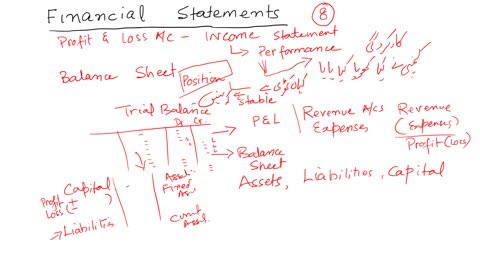 Financial Statements
8
Profit & Loss A/c - Income Statement
Performance
کارکردگی
Balance Sheet
Position
کمپنی نے کیا کھویا کیا پایا
کہاں کھڑی ہے
Stable
Trial Balance
Dr. Cr.
P&L
Revenue A/cs
Expenses
Revenue
(Expenses)
Profit (Loss)
Balance
Sheet
Assets, Liabilities, Capital
Assets
Fixed
Capital
Profit
Loss
Liabilities